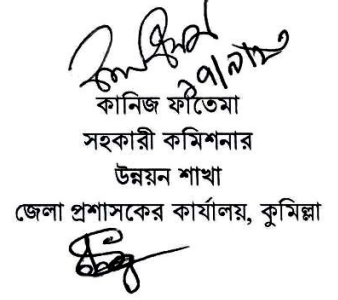 কানিজ ফাতেমা
সহকারী কমিশনার
উন্নয়ন শাখা
জেলা প্রশাসকের কার্যালয়, কুমিল্লা